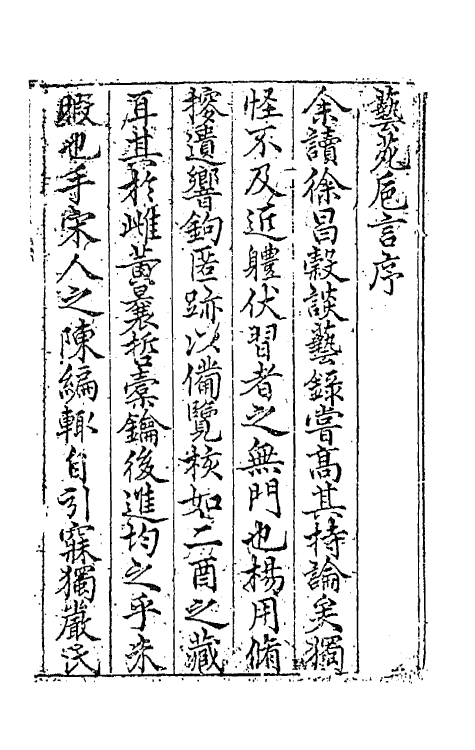 藝苑巵言序
余讀徐昌穀談藝錄嘗高其持論矣獨
怪不及近體伏習者之無門也楊用脩
搜遺響鉤匿跡以備覽核如二酉之藏
耳其於雌黃曩哲橐鑰後進均之乎未
暇也手宋人之陳編輙自引寐獨嚴氏